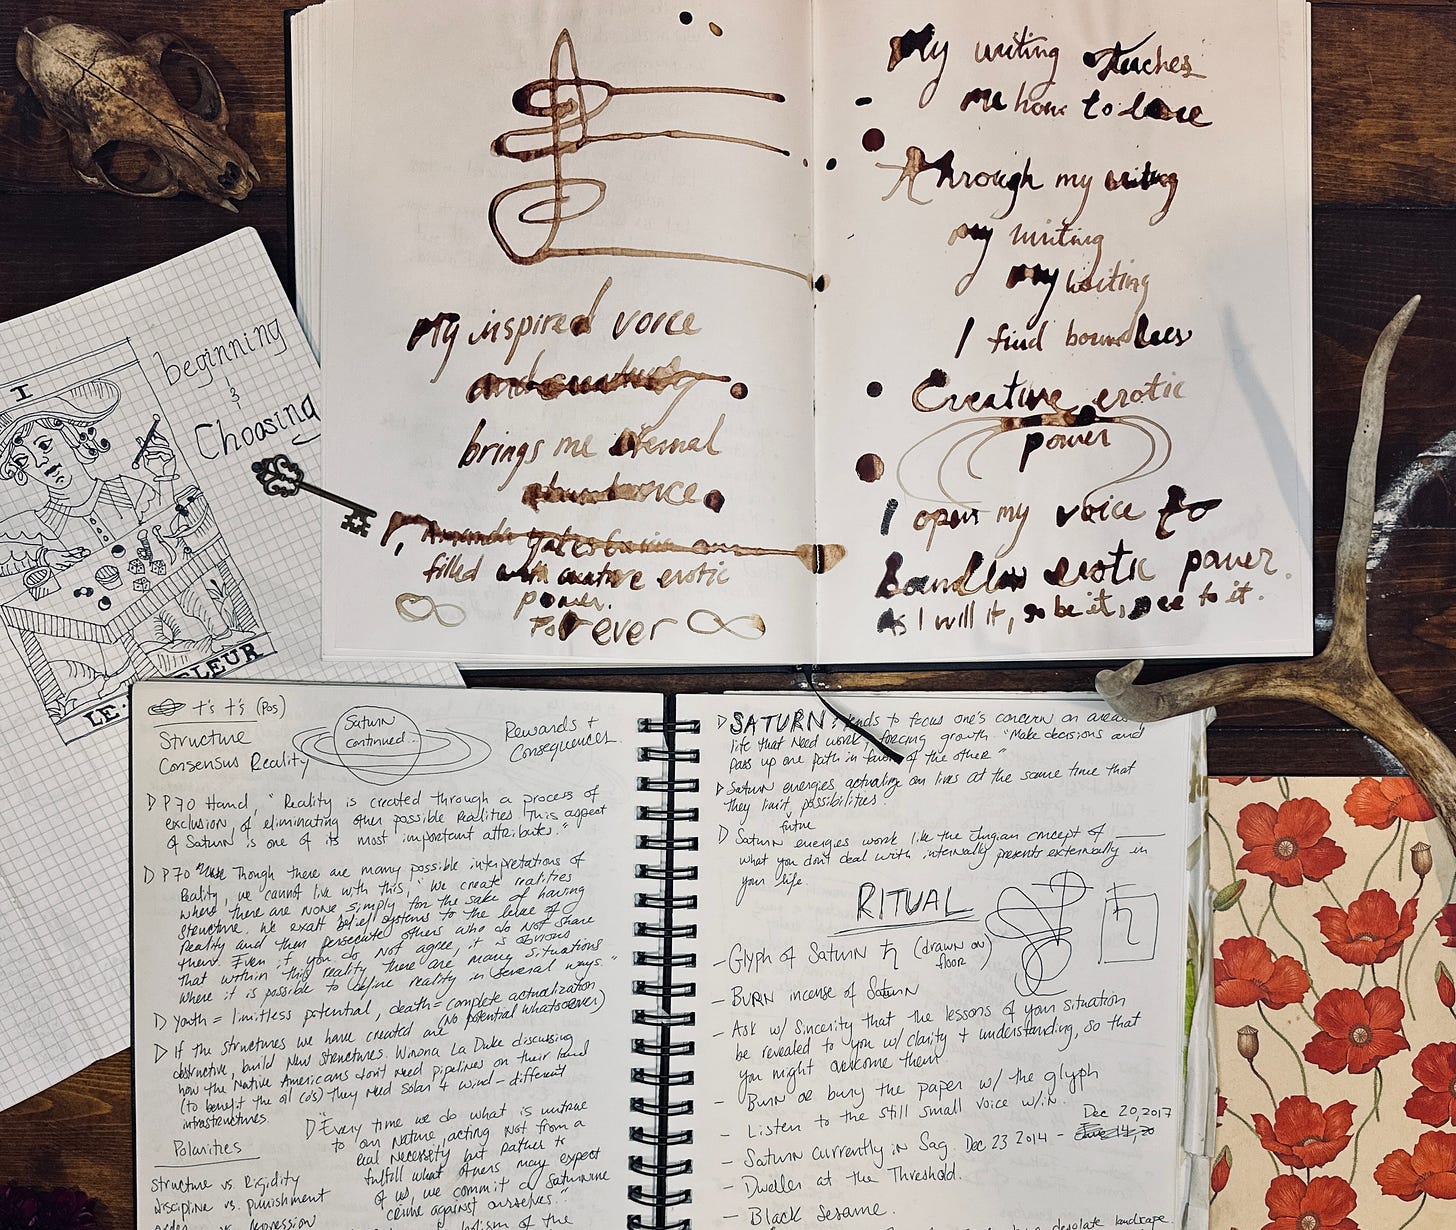 My inspired voice
brings me eternal
filled with creative erotic
power.
Forever
My writing teaches
me how to love
Through my writing
my writing
my writing
I find boundless
Creative erotic
power
I open my voice to
boundless erotic power.
As I will it, so be it, see to it.
I
beginning
&
Choosing
LE
ELEUR
t's t's (Pos)
Structure
Consensus Reality
Saturn
continued...
Rewards +
Consequences
P70 Hand, "Reality is created through a process of
exclusion, of eliminating other possible realities. This aspect
of Saturn is one of its most important attributes."
P70 Though there are many possible interpretations of
Reality, we cannot live with this. "We create realities
where there are none simply for the sake of having
structure. We exalt belief systems to the level of
reality and then persecute others who do not share
them. Even if you do not agree, it is obvious
that within this reality, there are many situations
where it is possible to define reality in several ways."
Youth = limitless potential, death = complete actualization
(no potential whatsoever)
If the structures we have created are
obstructive, build new structures. Winona La Duke discussing
how the Native Americans don't need pipelines on their land
(to benefit the oil co's) they need solar + wind - different
infrastructures.
Polarities
structure vs. Rigidity
discipline vs. punishment
vs. repression
"Every time we do what is untrue
to our nature, acting not from a
real necessity but rather to
fulfill what others may expect
of us, we commit a Saturnine
crime against ourselves."
of the
SATURN: tends to focus one's concern on areas
life that need work, forcing growth. "Make decisions and
pass up one path in favor of the other"
Saturn energies actualize our lives at the same time that
they limit possibilities.
future
Saturn energies work like the Jungian concept of
what you don't deal with internally presents externally in
your life.
RITUAL
- Glyph of Saturn ♄ (drawn on
floor)
♄
- Burn incense of Saturn
- Ask w/ sincerity that the lessons of your situation
be revealed to you w/ clarity + understanding, so that
you might overcome them
- Burn or bury the paper w/ the glyph
- Listen to the still small voice w/in.
- Saturn currently in Sag. Dec 23 2014 - Dec 20, 2017
- Dweller at the Threshold.
- Black Sesame.
desolate landscape.